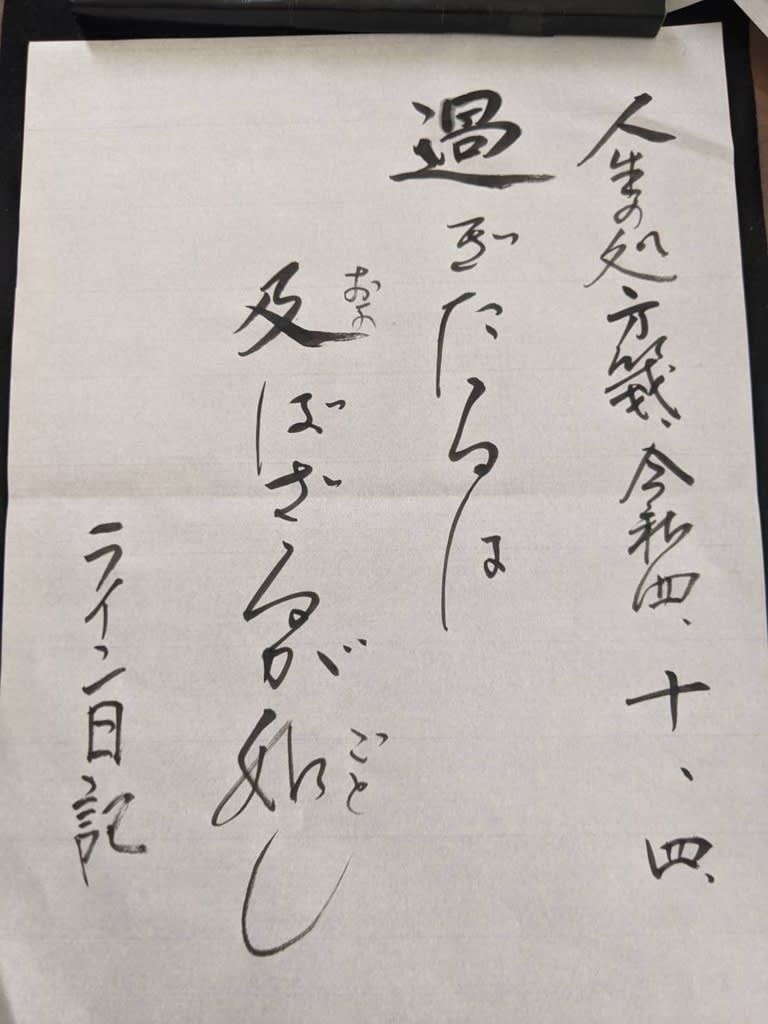 人生の処方箋、令和四、十、四、
過ぎたるは
及ばざるが如し
およ
ごと
ライン日記